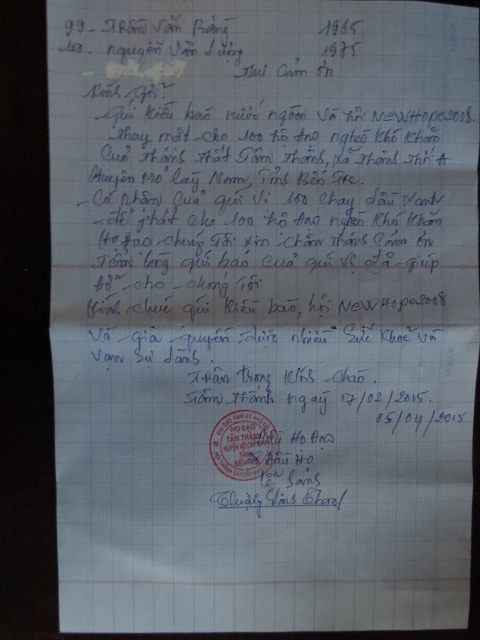 99- Trần Văn Bảng 1965
100- Nguyễn Văn Lượng 1975
Thư Cảm ơn
Kính gởi:
Quí kiều bào nước ngoài và hội NEWHope2008.
Thay mặt cho 100 hộ đạo nghèo khó khăn
Của thánh thất Tâm Thành, xã Thành Thới A
Huyện Mỏ Cày Nam, Tỉnh Bến Tre.
- Có nhận của quí vị 100 chay dầu xanh
để phát cho 100 hộ đạo nghèo khó khăn
Họ đạo chúng Tôi xin chân thành Cảm ơn
Tấm lòng quí báo của quí vị đã giúp
đỡ cho chúng tôi
Kính chúc quí kiều bào, hội NEWHope2008
Và gia quyến được nhiều Sức khoẻ và
Vạn sự lành.
Trân trọng kính chào.
Tâm Thành ngày 17/02/2015.
05/04/2015
HỌ ĐẠO
TÂM THÀNH
Họ Đạo
Đầu Họ
Lễ Sanh